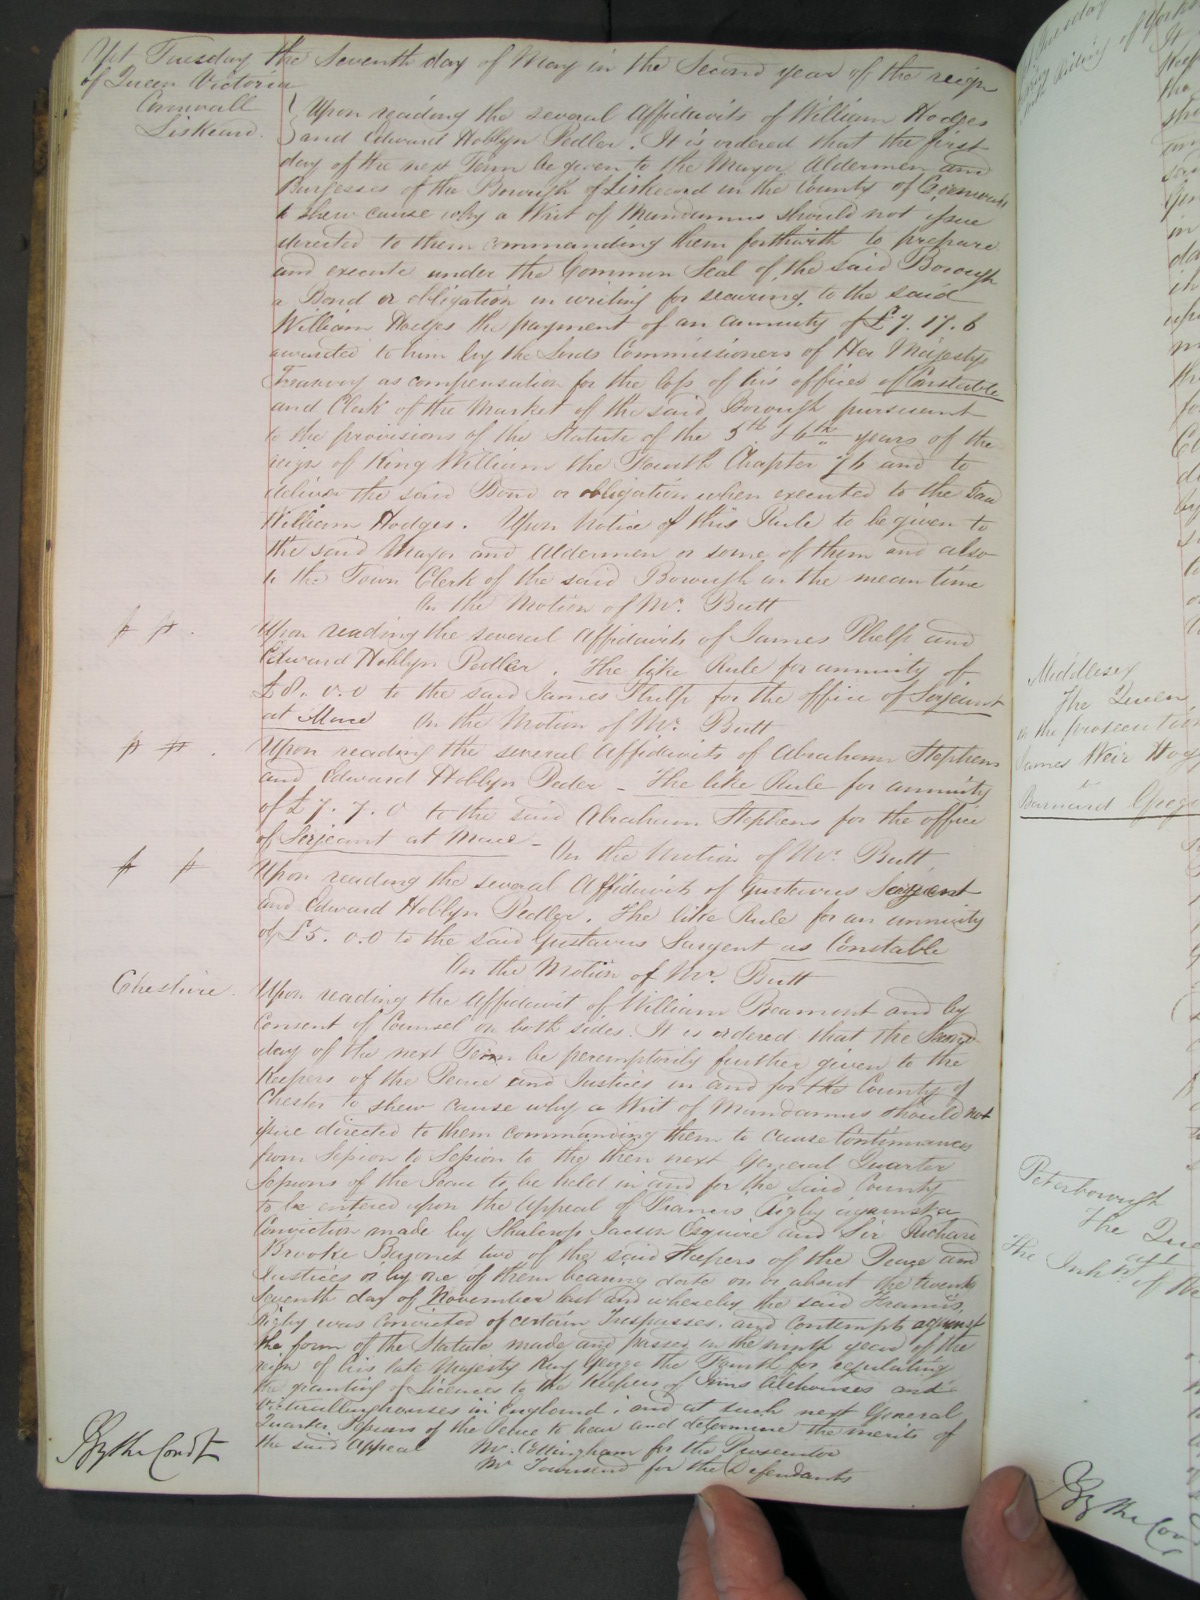 Yet Tuesday the Seventh day of May in the Second year of the reign
of Queen Victoria
Cornwall
Liskeard.
Upon reading the several Affidavits of William Hodges
and Edward Hoblyn Pedler. It is ordered that the first
day of the next Term be given to the Mayor Aldermen and
Burgesses of the Borough of Liskeard in the County of Cornwall
to shew cause why a Writ of Mandamus should not issue
directed to them commanding them forthwith to prepare
and execute under the Common Seal of the said Borough
a Bond or obligation in writing for securing to the said
William Hodges the payment of an annuity of £7. 17. 6
awarded to him by the Lords Commissioners of Her Majestys
Treasury as compensation for the loss of his offices of Constable
and Clerk of the Market of the said Borough pursuant
to the provisions of the Statute of the 5th & 6th years of the
reign of King William the Fourth Chapter 76 and to
deliver the said Bond or obligation when executed to the said
William Hodges. Upon Notice of this Rule to be given to
the said Mayor and Aldermen or some of them and also
to the Town Clerk of the said Borough in the mean time
On the Motion of Mr. Butt
Upon reading the several Affidavits of James Phelp and
Edward Hoblyn Pedler. The like Rule for annuity of
£8. 0. 0 to the said James Phelp for the office of Serjeant
at Mace On the Motion of Mr. Butt
Upon reading the several Affidavits of Abraham Stephens
and Edward Hoblyn Peder - The like Rule for annuity
of £7. 7. 0 to the said Abraham Stephens for the office
of Serjeant at Mace - On the Motion of Mr. Butt
Upon reading the several Affidavits of Gustavus Sargent
and Edward Hoblyn Pedler. The like Rule for an annuity
of £5. 0. 0 to the said Gustavus Sargent as Constable
On the Motion of Mr. Butt
Cheshire.
Upon reading the Affidavit of William Beamont and by
Consent of Counsel on both sides. It is ordered that the second
day of the next Term be peremptorily further given to the
Keepers of the Peace and Justices in and for the County of
Chester to shew cause why a Writ of Mandamus should not
issue directed to them commanding them to cause Continuances
from Session to Session to the then next General Quarter
Sessions of the Peace to be held in and for the said County
to be entered upon the Appeal of Francis Rigby against a
Conviction made by Esquire and Sir Richard
Brooke Baronet two of the said Keepers of the Peace and
Justices or by one of them bearing date on or about the twenty
Seventh day of November last and whereby the said Francis
Rigby was convicted of certain Trespasses and Contempts against
the form of the Statute made and passed in the ninth year of the
reign of his late Majesty King George the Fourth for regulating
the granting of Licences to the Keepers of Inns Alehouses and
Victuallinghouses in England; and at such next General
Quarter Sessions of the Peace to hear and determine the merits of
the said Appeal Mr. for the Prosecutor
Mr Townsend for the Defendants
By the Court
Middlesex
The Queen
on the prosecution
James Weir Hog
v
Barnard
Peterborough
The Que
agt
The Inhts of
By the Cou